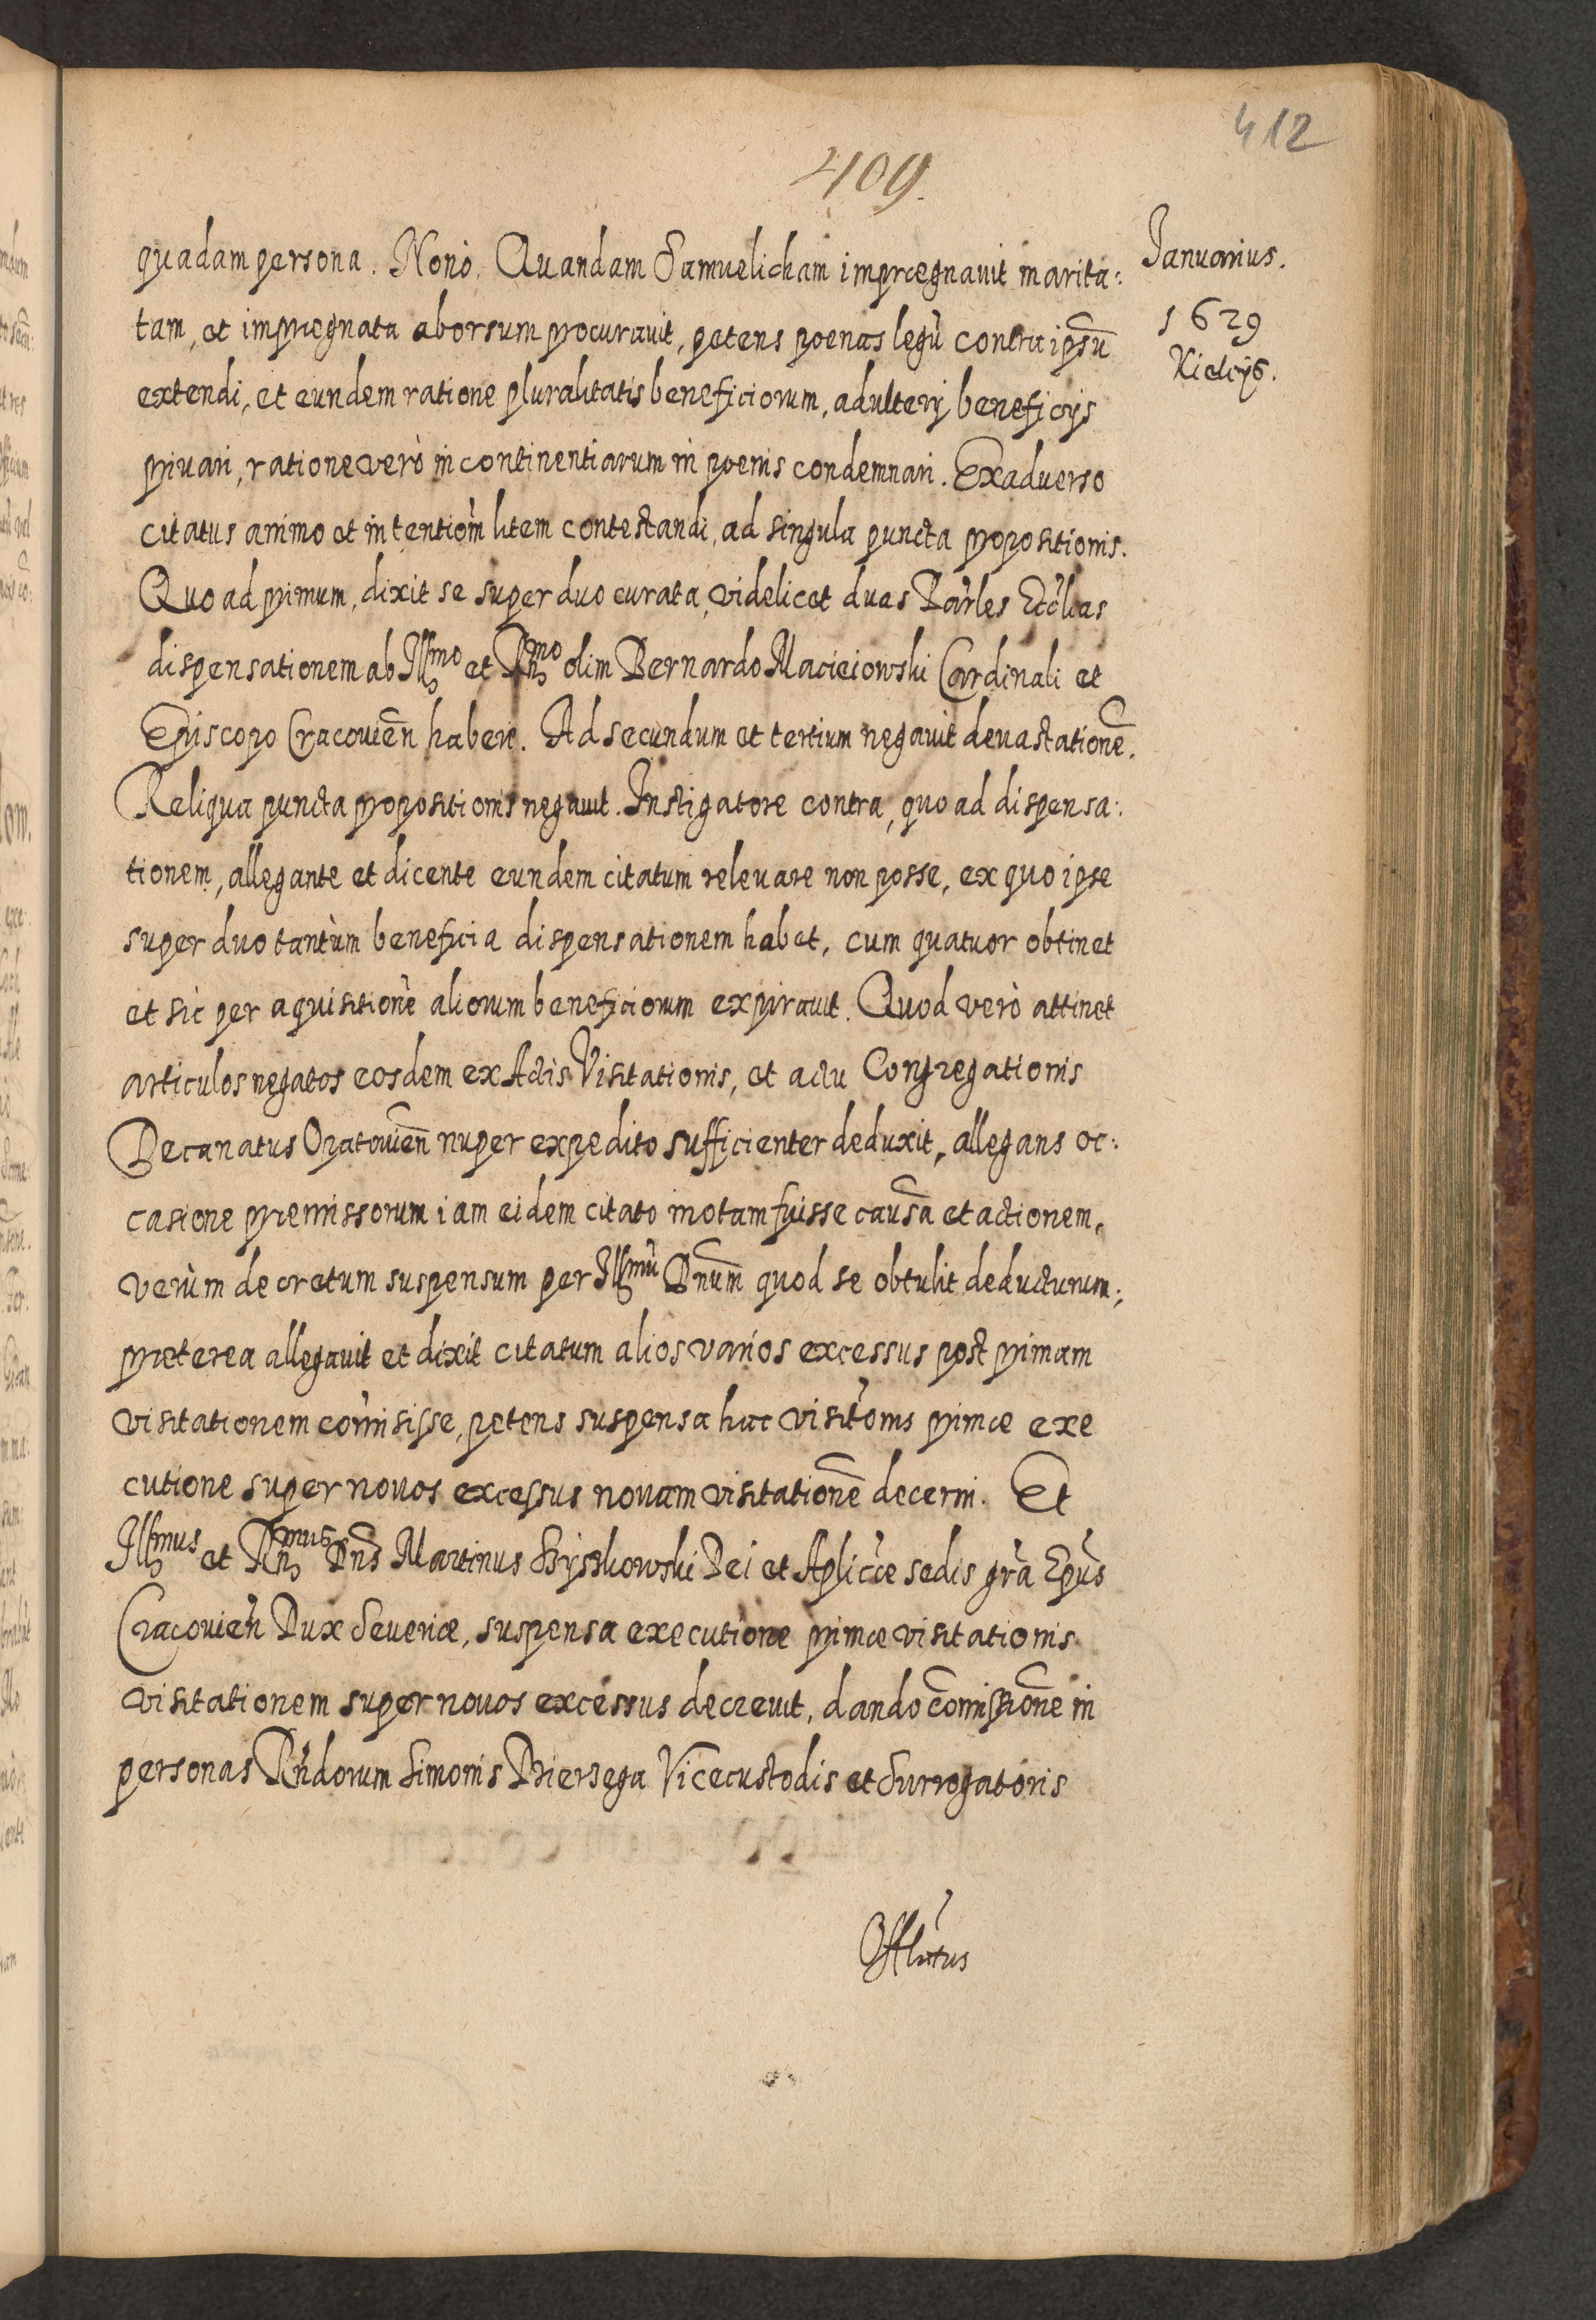 412
409.
Januarius.
1629
Kielcijs.
quadam persona. Nonò. Quandam Samuelicham imprægnauit marita:
tam, et imprægnata aborsum procurauit, petens poenas legũ contra ipsũ
extendi, et eundem ratione pluralitatis beneficiorum, adulterij beneficijs
priuari, ratione verò incontinentiarum in poenis condemnari. Ex aduerso
citatus animo et intentiom̃ litem contestandi, ad singula puncta propositionis.
Quo ad primum, dixit se super duo curata, videlicet duas Par̃les Ecc̃lias
dispensationem ab Illmo et Rn̄mo olim Bernardo Macieiowski Cardinali et
Episcopo Cracouien̄ habere. Ad secundum et tertium negauit deuastationē.
Reliqua puncta propositionis negauit. Instigatore contra, quo ad dispensa:
tionem, allegante et dicente eundem citatum releuare non posse, ex quo ipse
super duo tantùm beneficia dispensationem habet, cum quatuor obtinet
et sic per aquisitionē aliorum beneficiorum expirauit. Quod verò attinet
articulos negatos eosdem ex Actis Visitationis, et actu Congregationis
Decanatus Opatouien̄ nuper expedito sufficienter deduxit, allegans oc:
casione præmissorum iam eidem citato motam fuisse causā et actionem,
verùm decretum suspensum per Illmũ Dnūm quod se obtulit deducturum;
præterea allegauit et dixit citatum alios varios excessus post primam
visitationem com̃isisse, petens suspensa hac visitõnis primæ exe
cutione super nouos excessus nouam visitationē decerni. Et
Illmus et Rn̄mus Dn̄s Martinus Szyszkowski Dei et Aplicæ sedis grã Epũs
Cracouien̄ Dux Seueriæ, suspensa executione primæ visitationis
visitationem super nouos excessus decreuit, dando com̄issionē in
personas Rn̄dorum Simonis Dziersega Vicecustodis et Surrogatoris
Offlatus